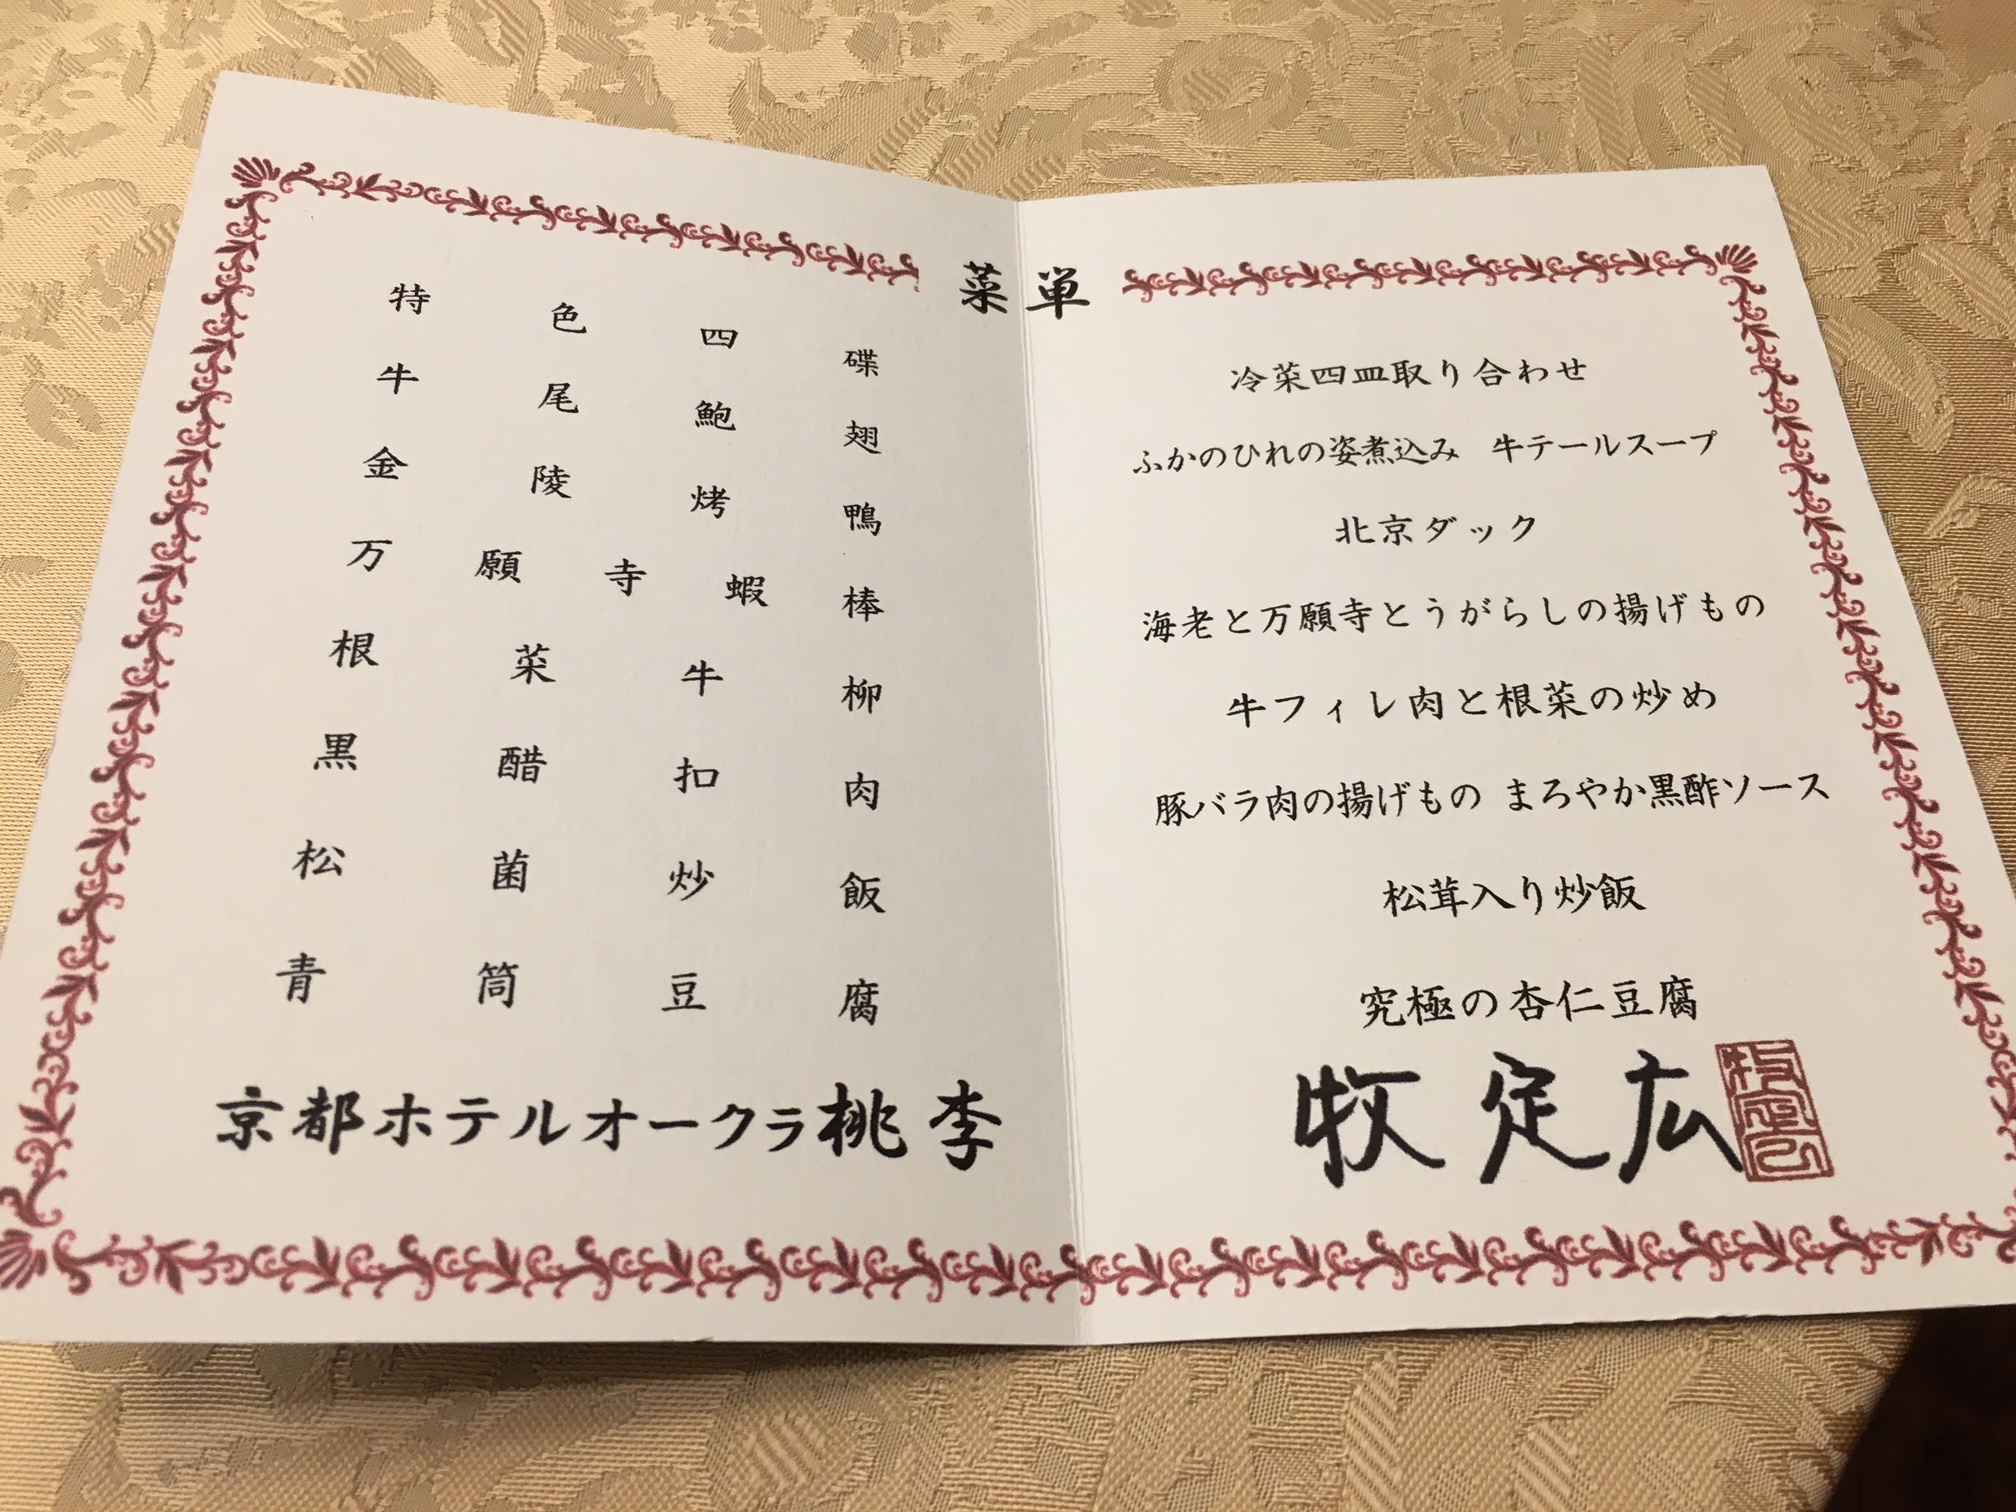 菜単
特色四碟
牛尾鮑翅
金陵烤鴨
万願寺蝦棒
根菜牛柳
黒醋扣肉
松菌炒飯
青筒豆腐
京都ホテルオークラ桃李
冷菜四皿取り合わせ
ふかのひれの姿煮込み 牛テールスープ
北京ダック
海老と万願寺とうがらしの揚げもの
牛フィレ肉と根菜の炒め
豚バラ肉の揚げもの まろやか黒酢ソース
松茸入り炒飯
究極の杏仁豆腐
牧定広